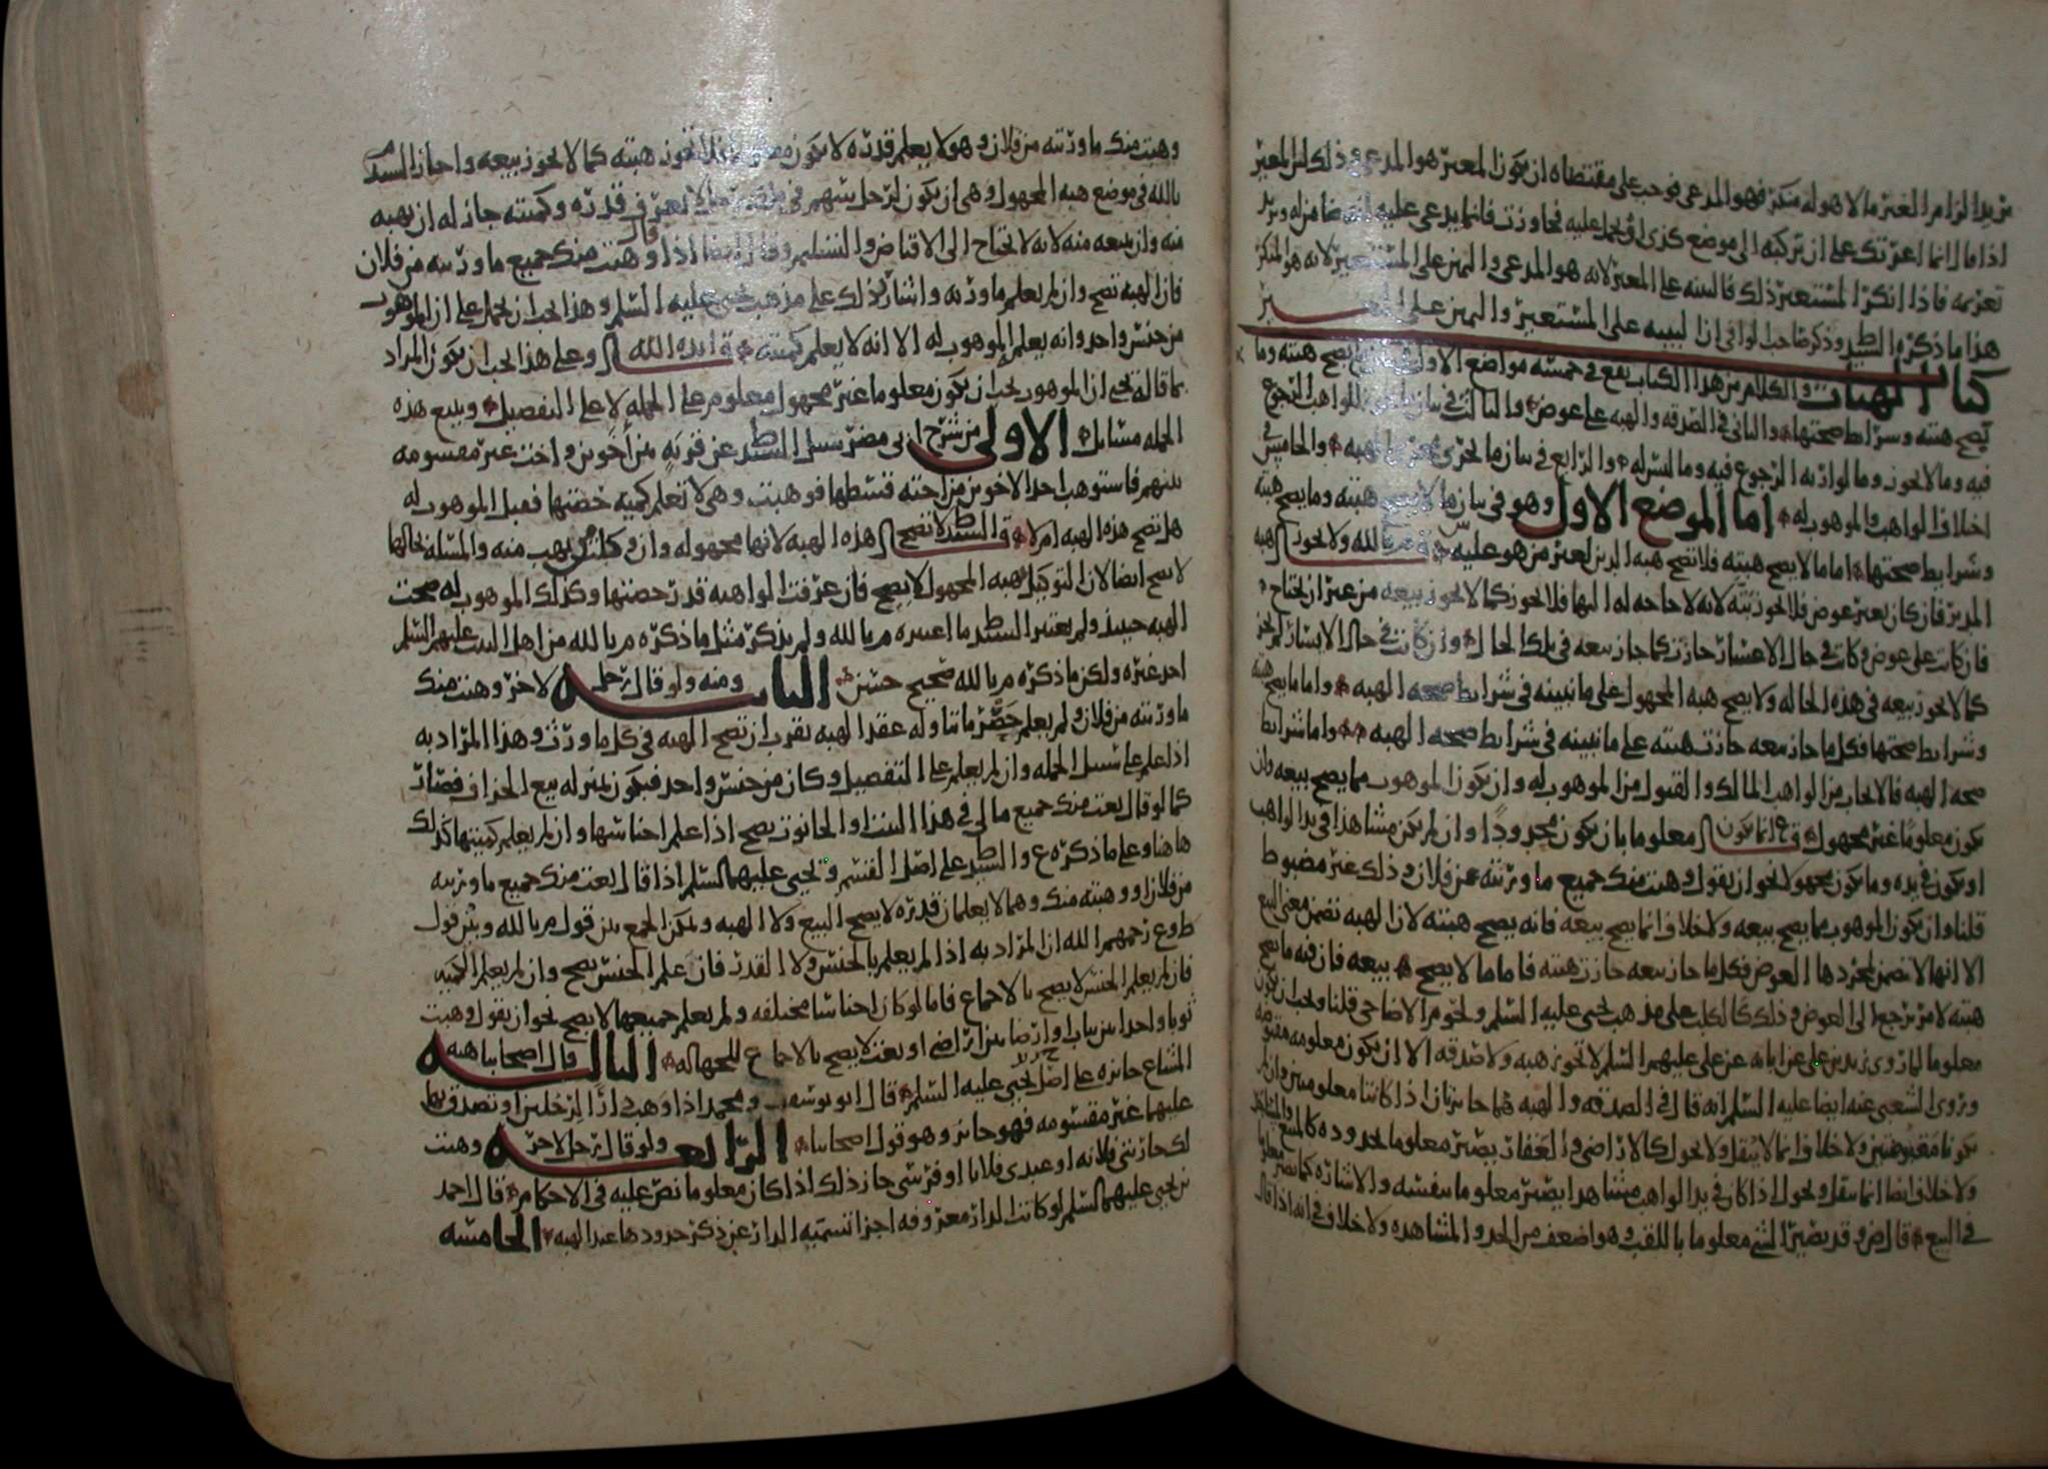 يريد الزام الغير ما لا هو له منكر فهو المدعي فوجب على مقتضاه ان يكون المعير هو المدعي وذلك لان المعير
اذا قال انما اعرتك على ان تركبه الى موضع كذى او تحمل عليه فجاوزت فانما يدعي عليه ضمانه ويريد
تغريمه فاذا انكر المستعير ذلك فالبينه على المعير لانه هو المدعي واليمين على المستعير لانه هو المنكر
هذا ما ذكره السيد ط وذكر صاحب الوافي ان البينه على المستعير واليمين على المعير
كتاب الهبات والكلام من هذا الكتاب يقع في خمسه مواضع الاول يصح هبته وما
يصح هبته وشرايط صحتها والثاني في الصدقه والهبه على عوض والثالث في بيان للواهب الرجوع
فيه وما لا يجوز وما لوارثه الرجوع فيه وما ليس له والرابع في بيان ما يجري مجرى الهبه والخامس في
اختلاف الواهب والموهوب له اما الموضع الاول وهو في بيان ما لا يصح هبته وما يصح هبته
وشرايط صحتها اما ما لا يصح هبته فلا تصح هبه الدين لغير من هو عليه م بالله ولا يجوز هبه
المدبر فان كان بغير عوض فلا يجوز بتّه لانه لا حاجه له اليها فلا يجوز كما لا يجوز بيعه من غير ان يحتاج
فان كانت على عوض وكانت في حال الاعسار جازت كما جاز بيعه في تلك الحال وان كانت في حال الايسار لم يجز
كما لا يجوز بيعه في هذه الحاله ولا يصح هبه المجهول على ما نبينه في شرايط صحه الهبه واما ما يصح هبته
وشرايط صحتها فكل ما جاز بيعه جازت هبته على ما نبينه في شرايط صحه الهبه واما شرايط
صحه الهبه فالايجاب من الواهب المالك والقبول من الموهوب له وان يكون الموهوب مما يصح بيعه وان
يكون معلومًا غير مجهول ع انما يكون معلوما بان يكون محدودًا وان لم يكن مشاهدا في يد الواهب
او يكون في يده وما يكون مجهولا نحو ان يقول وهبت منك جميع ما ورثته عن فلان وذلك غير مضبوط
قلنا وان يكون الموهوب مما يصح بيعه ولا خلاف انما يصح بيعه فانه يصح هبته لان الهبه تضمن معنى البيع
الا انها لا تضمن بمجردها العوض فكل ما جاز بيعه جازت هبته فاما ما لا يصح بيعه فان فيه ما تصح
هبته لامر يرجع الى العوض وذلك كالكلب على مذهب يحيى عليه السلم ولحوم الاضاحي قلنا ويجب ان يكون
معلوما لما روى زيد بن علي عن ابايه عن علي عليهم السلم لا تجوز هبه ولا صدقه الا ان يكون معلومه مقسومه
وروى الشعبي عنه ايضا عليه السلم انه قال في الصدقه والهبه هما جايزتان اذا كانتا معلومتين وان لم
تكونا مقبوضتين ولا خلاف انما لا ينقل ولا يحول كالاراضي والعقار يصير معلوما بحدوده كالمبيع
ولا خلاف ايضا انما ينقل ويحول اذا كان في يد الواهب مشاهدا يصير معلوما بنفسه والاشاره كما يصير معلوما
في البيع قال ض وقد يصير الشي معلوما باللقب وهو اضعف من الحد والمشاهده ولا خلاف في انه اذا قال
وهبت منك ما ورثته من فلان وهو لا يعلم قدره لا يكون فلا تجوز هبته كما لا يجوز بيعه واجاز السيد م
بالله في موضع هبه المجهول وهي ان يكون لرجل سهم في لا يعرف قدره وكميته جاز له ان يهبه
منه وان يبيعه منه لانه لا يحتاج الى الاقباض والتسليم وقال ايضا اذا قال وهبت منك جميع ما ورثته من فلان
فان الهبه تصح وان لم يعلم ما ورثه واشار بذلك على مذهب يحيى عليه السلم وهذا يجب ان يحمل على ان الموهوب
من جنس واحد وانه يعلم الموهوب له الا انه لا يعلم كميته ايده الله وعلى هذا يجب ان يكون المراد
بما قاله يحيى ان الموهوب يجب ان يكون معلوما غير مجهول معلوم على الجمله لا على التفصيل ويتبع هذه
الجمله مسايل الاولى من شرح ابي مضر سيل السيد ط عن قريه بين أخوين واخت غير مقسومه
بينهم فاستوهب احد الاخوين من اخته قسطها فوهبت وهي لا تعلم كميه حصتها فقبل الموهوب له
هل تصح هذه الهبه ام لا قال السيد ط لا تصح هذه الهبه لانها مجهوله وان وكلت من يهب منه والمسله بحالها
لا يصح ايضا لان التوكيل بهبه المجهول لا يصح فان عرفت الواهبه قدر حصتها وكذلك الموهوب له صحت
الهبه حينيذ ولم يعتبر السيد ط ما اعتبره م بالله ولم يذكر مثل ما ذكره م بالله من اهل البيت عليهم السلم
احد غيره ولكن ما ذكره م بالله صحيح حسن الثانيه ومنه ولو قال رجل لاخر وهبت منك
ما ورثته من فلان ولم يعلم حَصْر ما تناوله عقد الهبه يقرب ان تصح الهبه في كل ما ورث وهذا المراد به
اذا علم على سبيل الجمله وان لم يعلم على التفصيل وكان من جنس واحد فيكون بمنزله بيع الجزاف فصار
كما لو قال بعت منك جميع ما لي في هذا البيت او الحانوت يصح اذا علم اجناسها وان لم يعلم كميتها كذلك
هاهنا وعلى ما ذكره ع والسيد ط على اصل القسم ويحيى عليهما السلم اذا قال بعت منك جميع ما ورثته
من فلان او وهبته منك وهما لا يعلمان قدره لا يصح البيع ولا الهبه ويمكن الجمع بين قول م بالله وبين قول
ط وع رحمهم الله ان المراد به اذا لم يعلم بالجنس ولا القدر فان علم الجنس يصح وان لم يعلم الكميه
فان لم يعلم الجنس لا يصح بالاجماع فاما لو كان اجناسا مختلفه ولم يعلم جميعها لا يصح نحو ان يقول وهبت
ثوبا واحدا من ثياب او ارضا من اراضي او بعت لا يصح بالاجماع للجهاله الثالثه قال اصحابنا هبه
المشاع جايزه على اصل يحيى عليه السلم قال ابو يوسف ومحمد اذا وهب دارًا لرجلين او تصدق بها
عليهما غير مقسومه فهو جايز وهو قول اصحابنا الرابعه ولو قال رجل لاخر وهبت
لك جاريتي فلانه او عبدي فلانا او فرسي جاز ذلك اذا كان معلوما نص عليه في الاحكام قال احمد
بن يحيى عليهما السلم لو كانت الدار معروفه اجزا تسميه الدار عن ذكر حدودها عند الهبه الخامسه